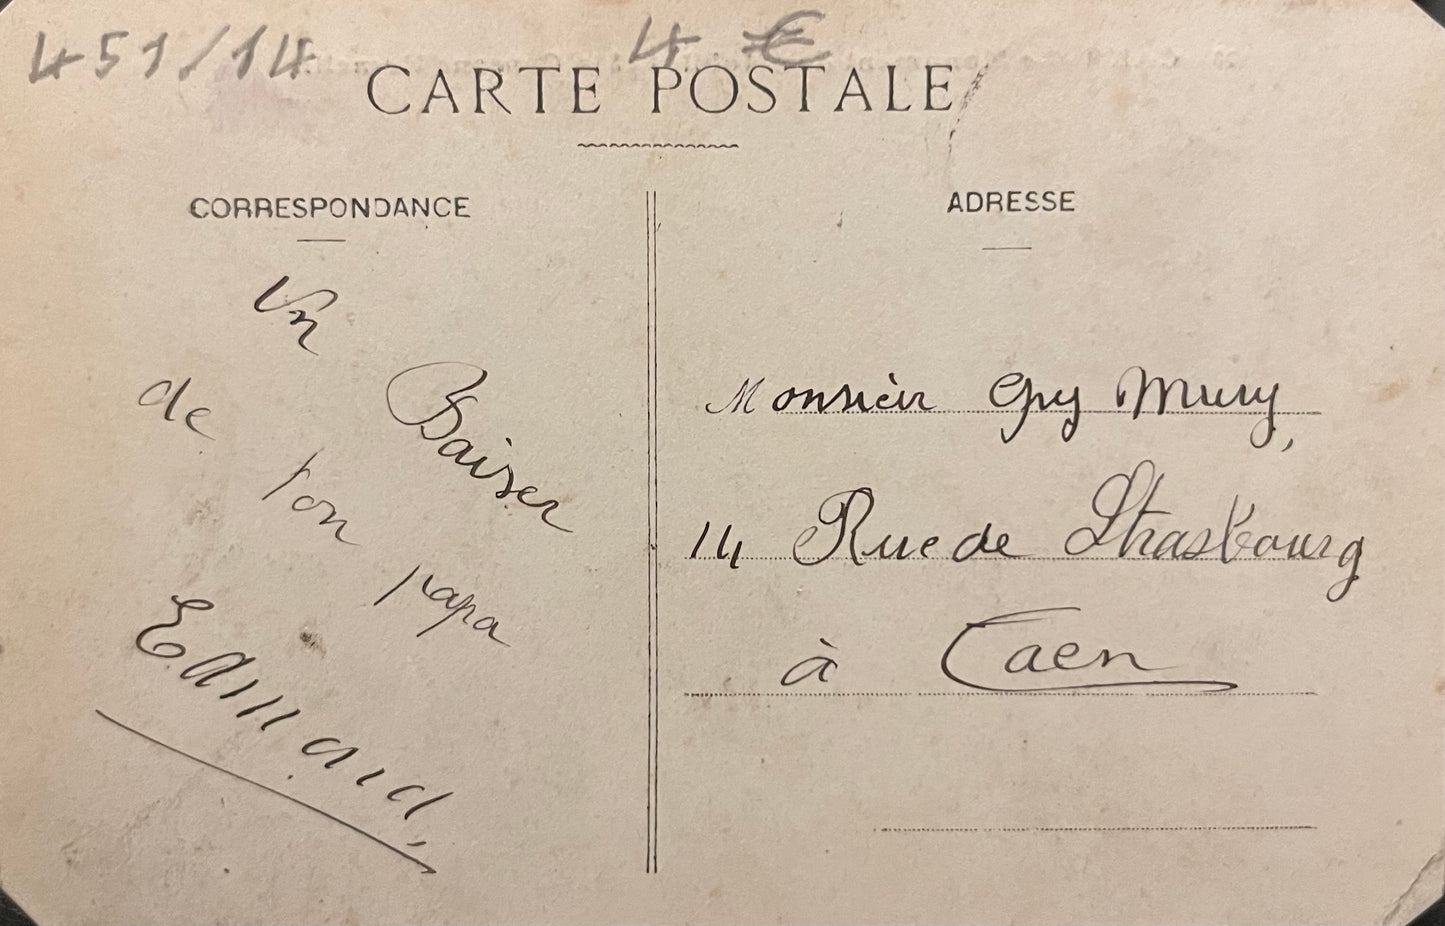 451/14 4 €
CARTE POSTALE
CORRESPONDANCE
Un Baiser
de ton papa
Edmond,
ADRESSE
Monsieur Guy Mury,
14 Rue de Strasbourg
à Caen